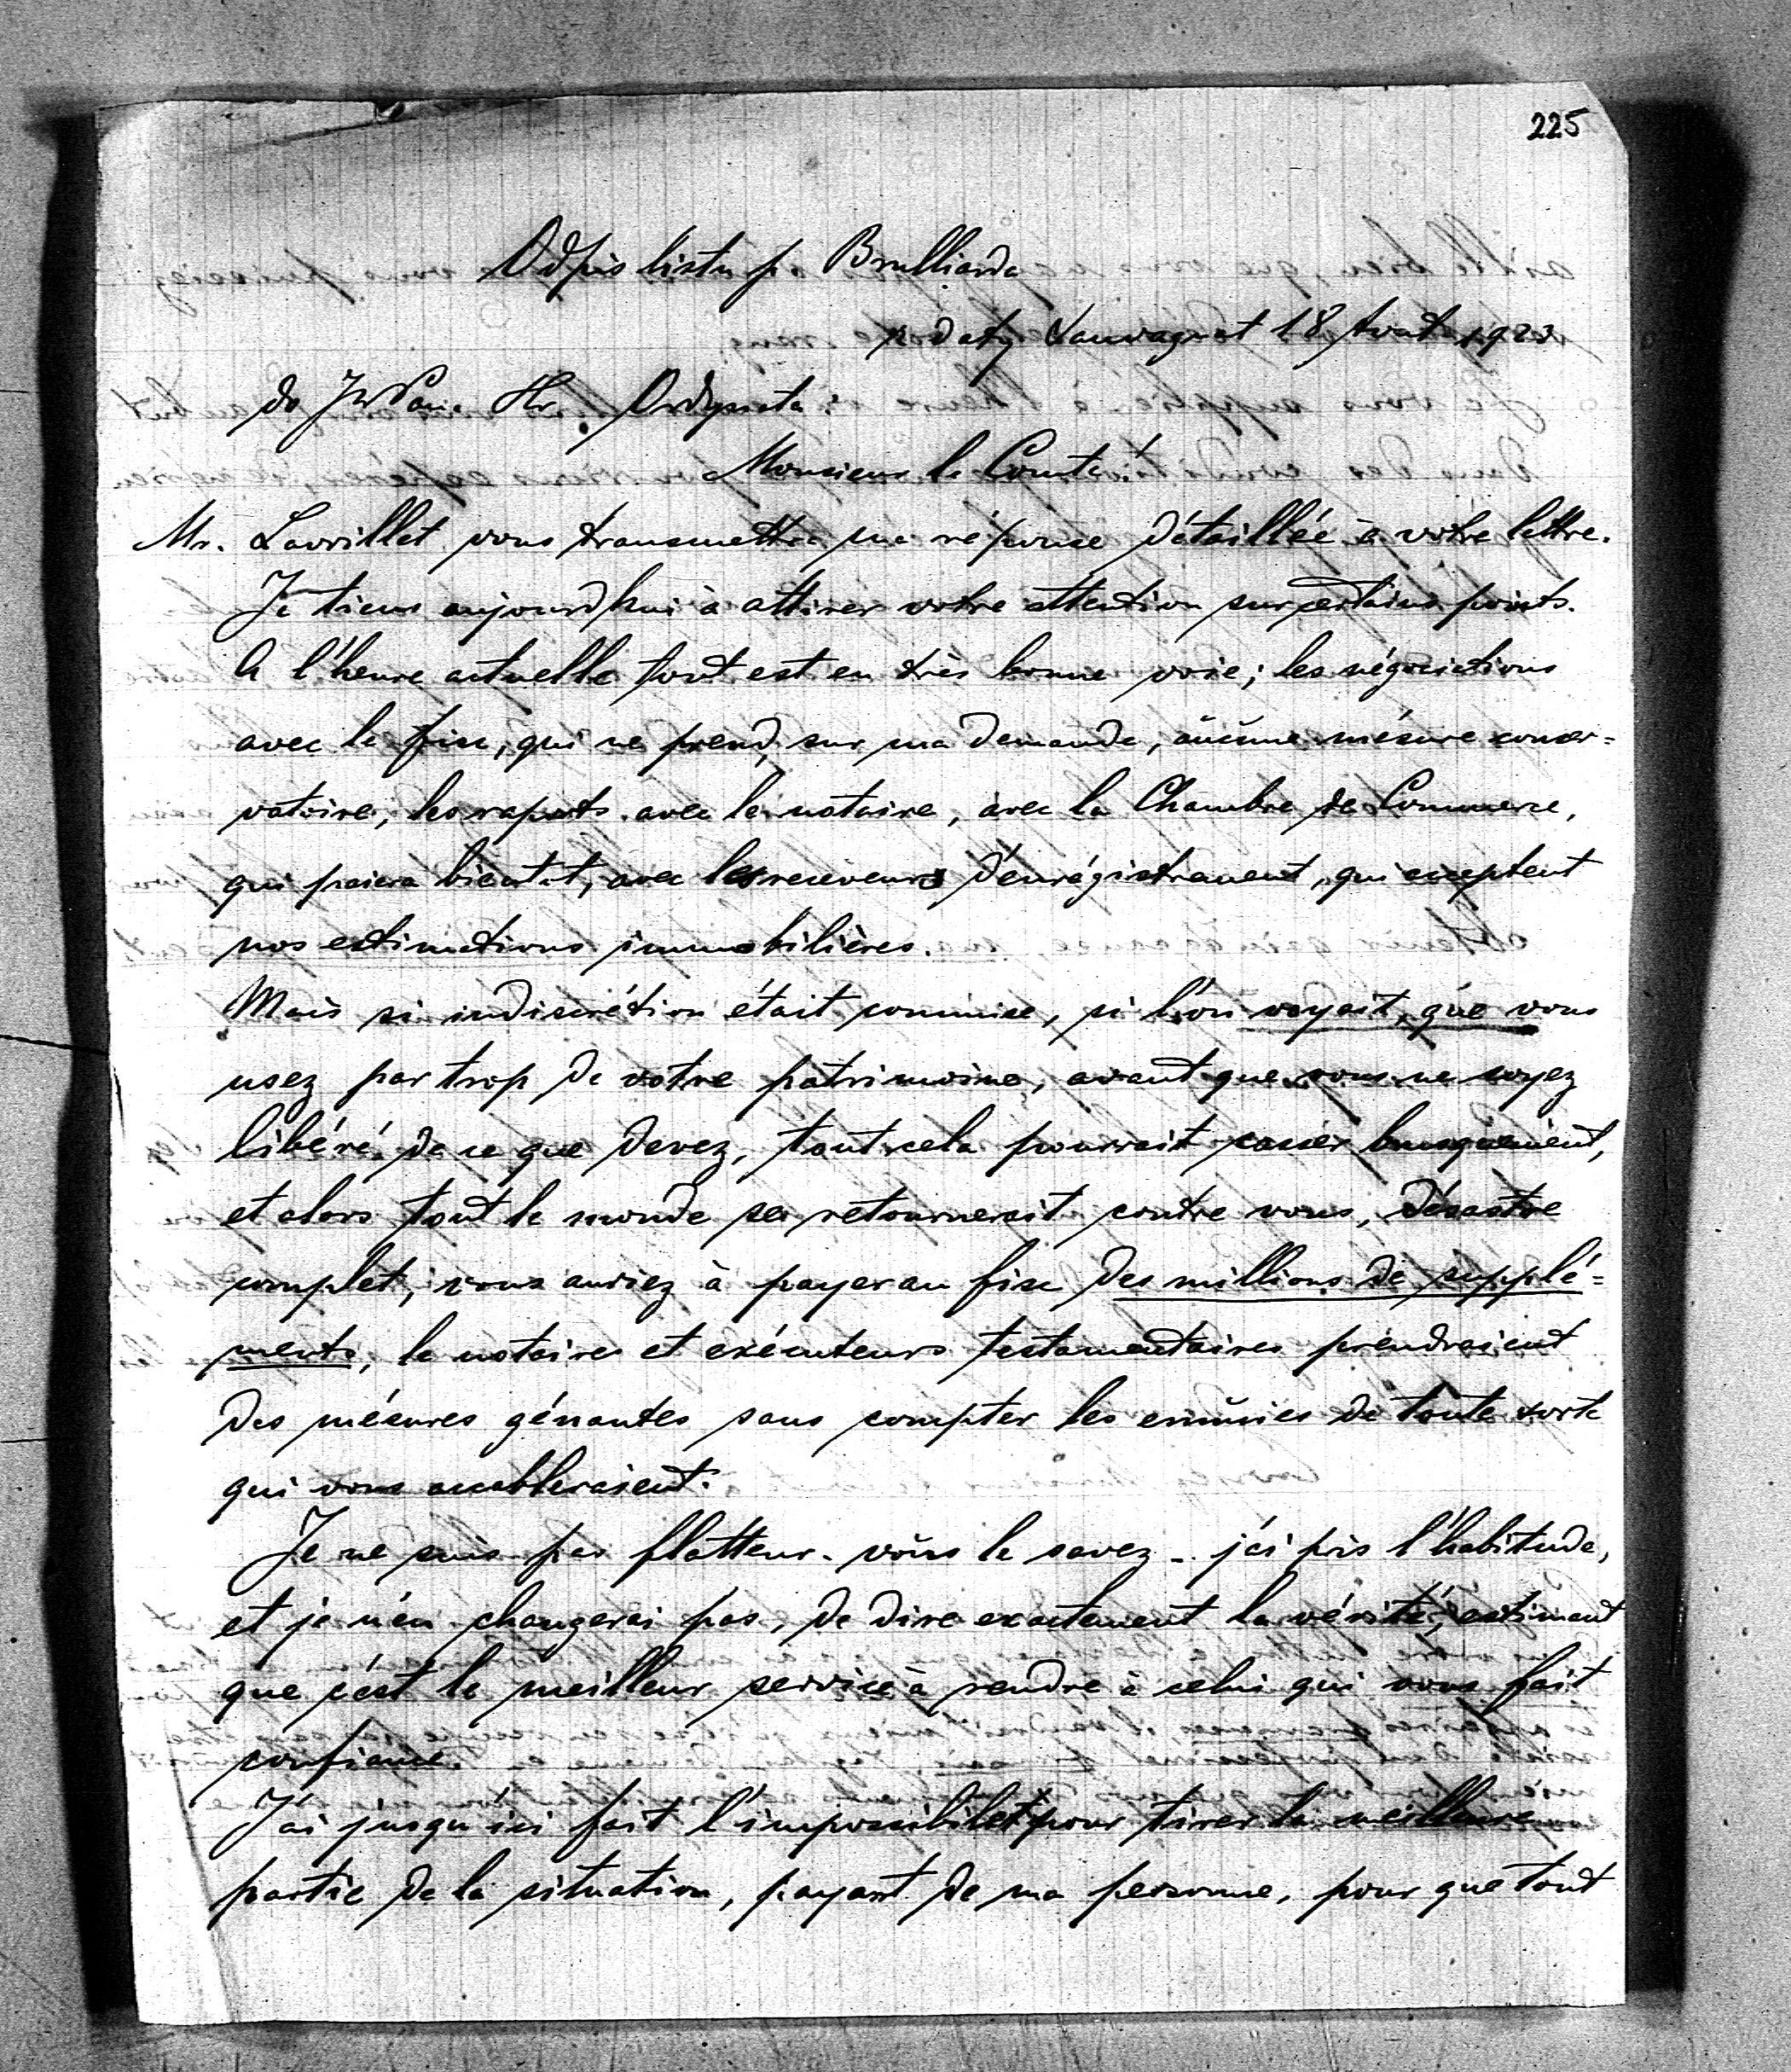 225
Odpis listu p Brulliarda
z daty Lauvagnat 18 Avout 1923
do JWPana Hr. Ordynata:
Monsieur le Comte!
Mr. Lavrillet vous transmettra ma réponse détaillée à votre lettre.
Je tiens aujourd'hui à attirer votre attention sur certains points.
A l'heure actuelle tout est en très bonne voie; les négociations
avec le fisc, qui ne prend, sur ma demande, aucune mésure conser=
vatoire, les raports avec le notaire, avec la Chambre de Commerce,
qui paiera bientôt, avec les receveurs d'enrégistrement, qui acceptent
nos estimations immobilières.
Mais si indiscrétion était commise, si l'on voyait, que vous
usez par trop de votre patrimoine, avant que vous ne soyez
libéré de ce que devez, tout cela pourrait casser brusquement,
et alors tout le monde se retournerait contre vous, désastre
complet, vous auriez à payer au fisc des millions de supplé=
ments, le notaire et exécuteurs testamentaires prendraient
des mésures gênantes sans compter les ennuies de toute sorte
qui vous accableraient.
Je ne suis pas flatteur - vous le savez - j'ai pris l'habitude,
et je n'en changerai pas, de dire exactement la vérité, estimant
que c'est le meilleur service à rendre à celui qui vous fait
confiance.
J'ai jusqu'ici fait l'impossibileté pour tirer la meilleure
partie de la situation, payant de ma personne, pour que tout